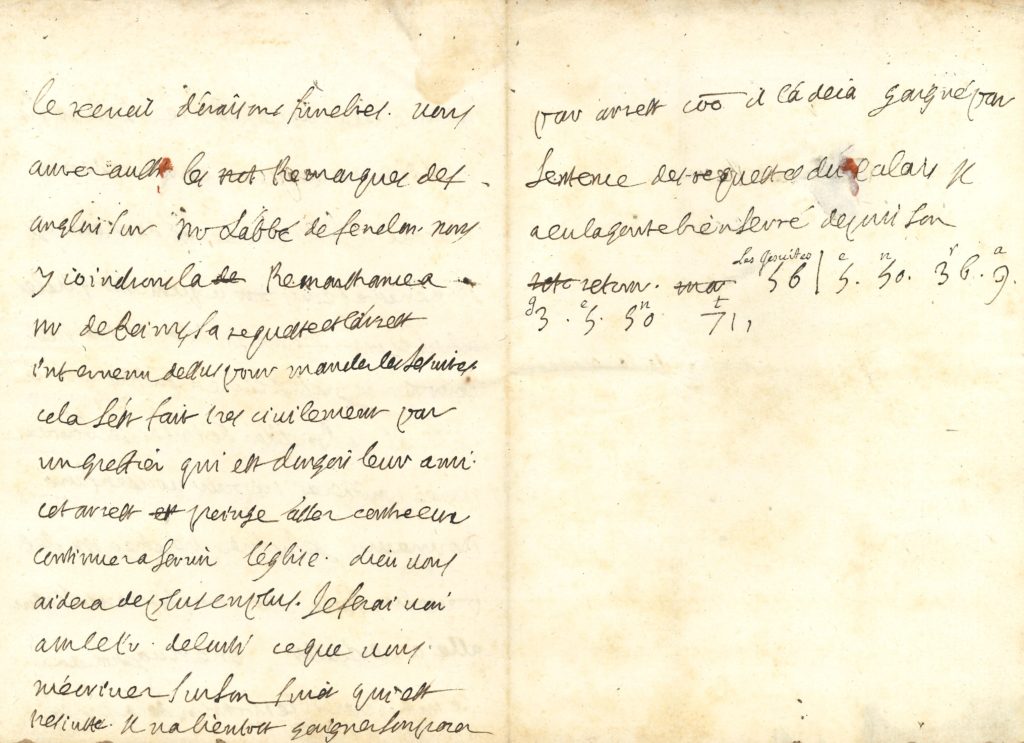 le recueil d'oraisons funebres. vous
aurez aussi les not Remarques des
anglois sur Mr L'abbé de fenelon. nous
y ioindrons la de Remonstrance a
Mr de Reims, la requeste et l'arrest
intervenu dessus pour mander les Jesuites
cela s'est fait tres civilement par
un greffier qui est leur ami.
cet arrest et contre eux
continuer a servir l'église. dieu vous
aidera de plus en plus. Je ferai voir
a ce que vous
m'ecrivez sur son suiet qui est
tres iuste. Il va bientost gaigner son proces
par arrest coõ il l'a deia gaigné par
sentence des requestes du palais Il
a eu la goute bien serré depuis son
reto retour. ma Les Jesuites 56 | e 5. n 50. r 36. a 9.
g 3. e 5. n 50 t 71,